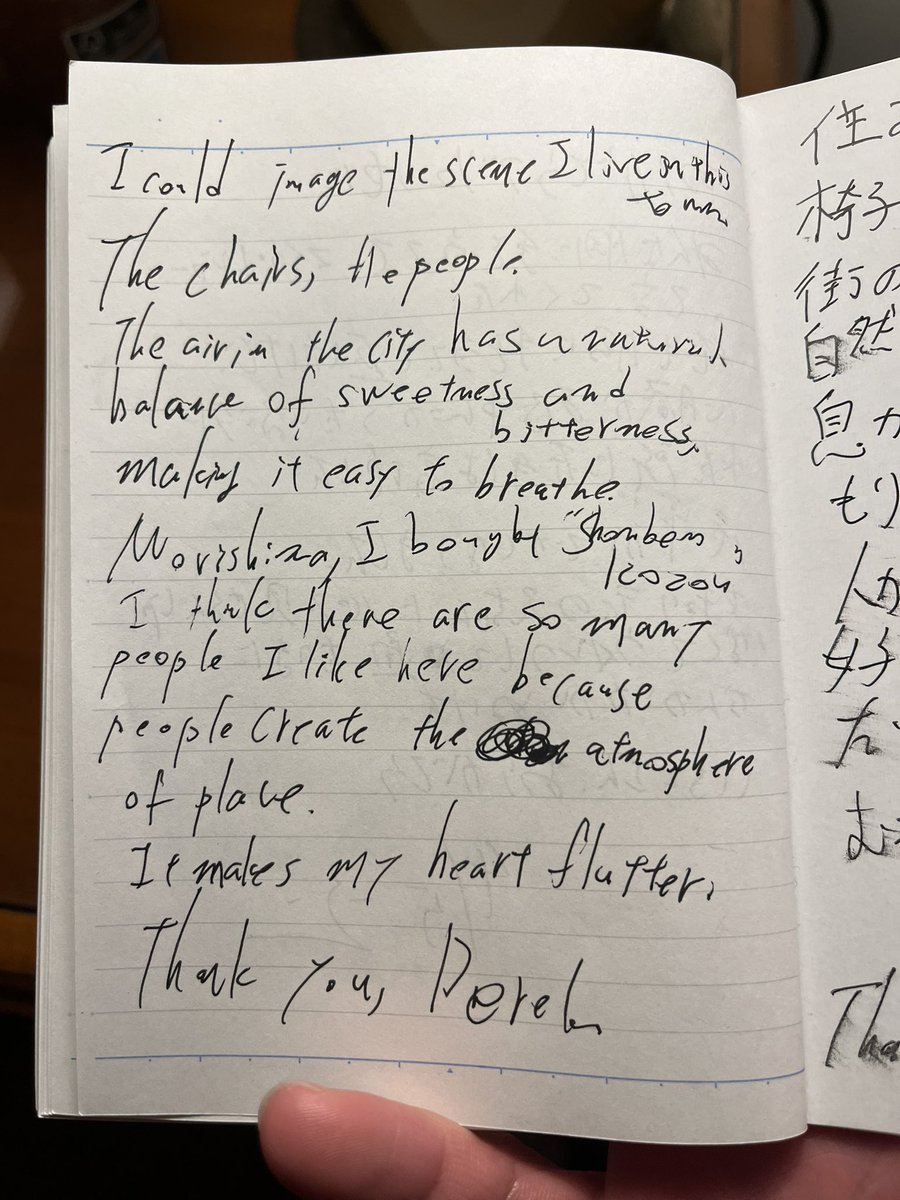 I could image the scene I live on this
town
The chairs, the people.
The air in the city has a natural
balance of sweetness and
bitterness,
making it easy to breathe.
Morishima, I bought "Shonben
Kozou"
I think there are so many
people I like here because
people create the atmosphere
of place.
It makes my heart flutter.
Thank you, Derek.
住
椅子
街の
自然
息が
もり
人が
好
Tha